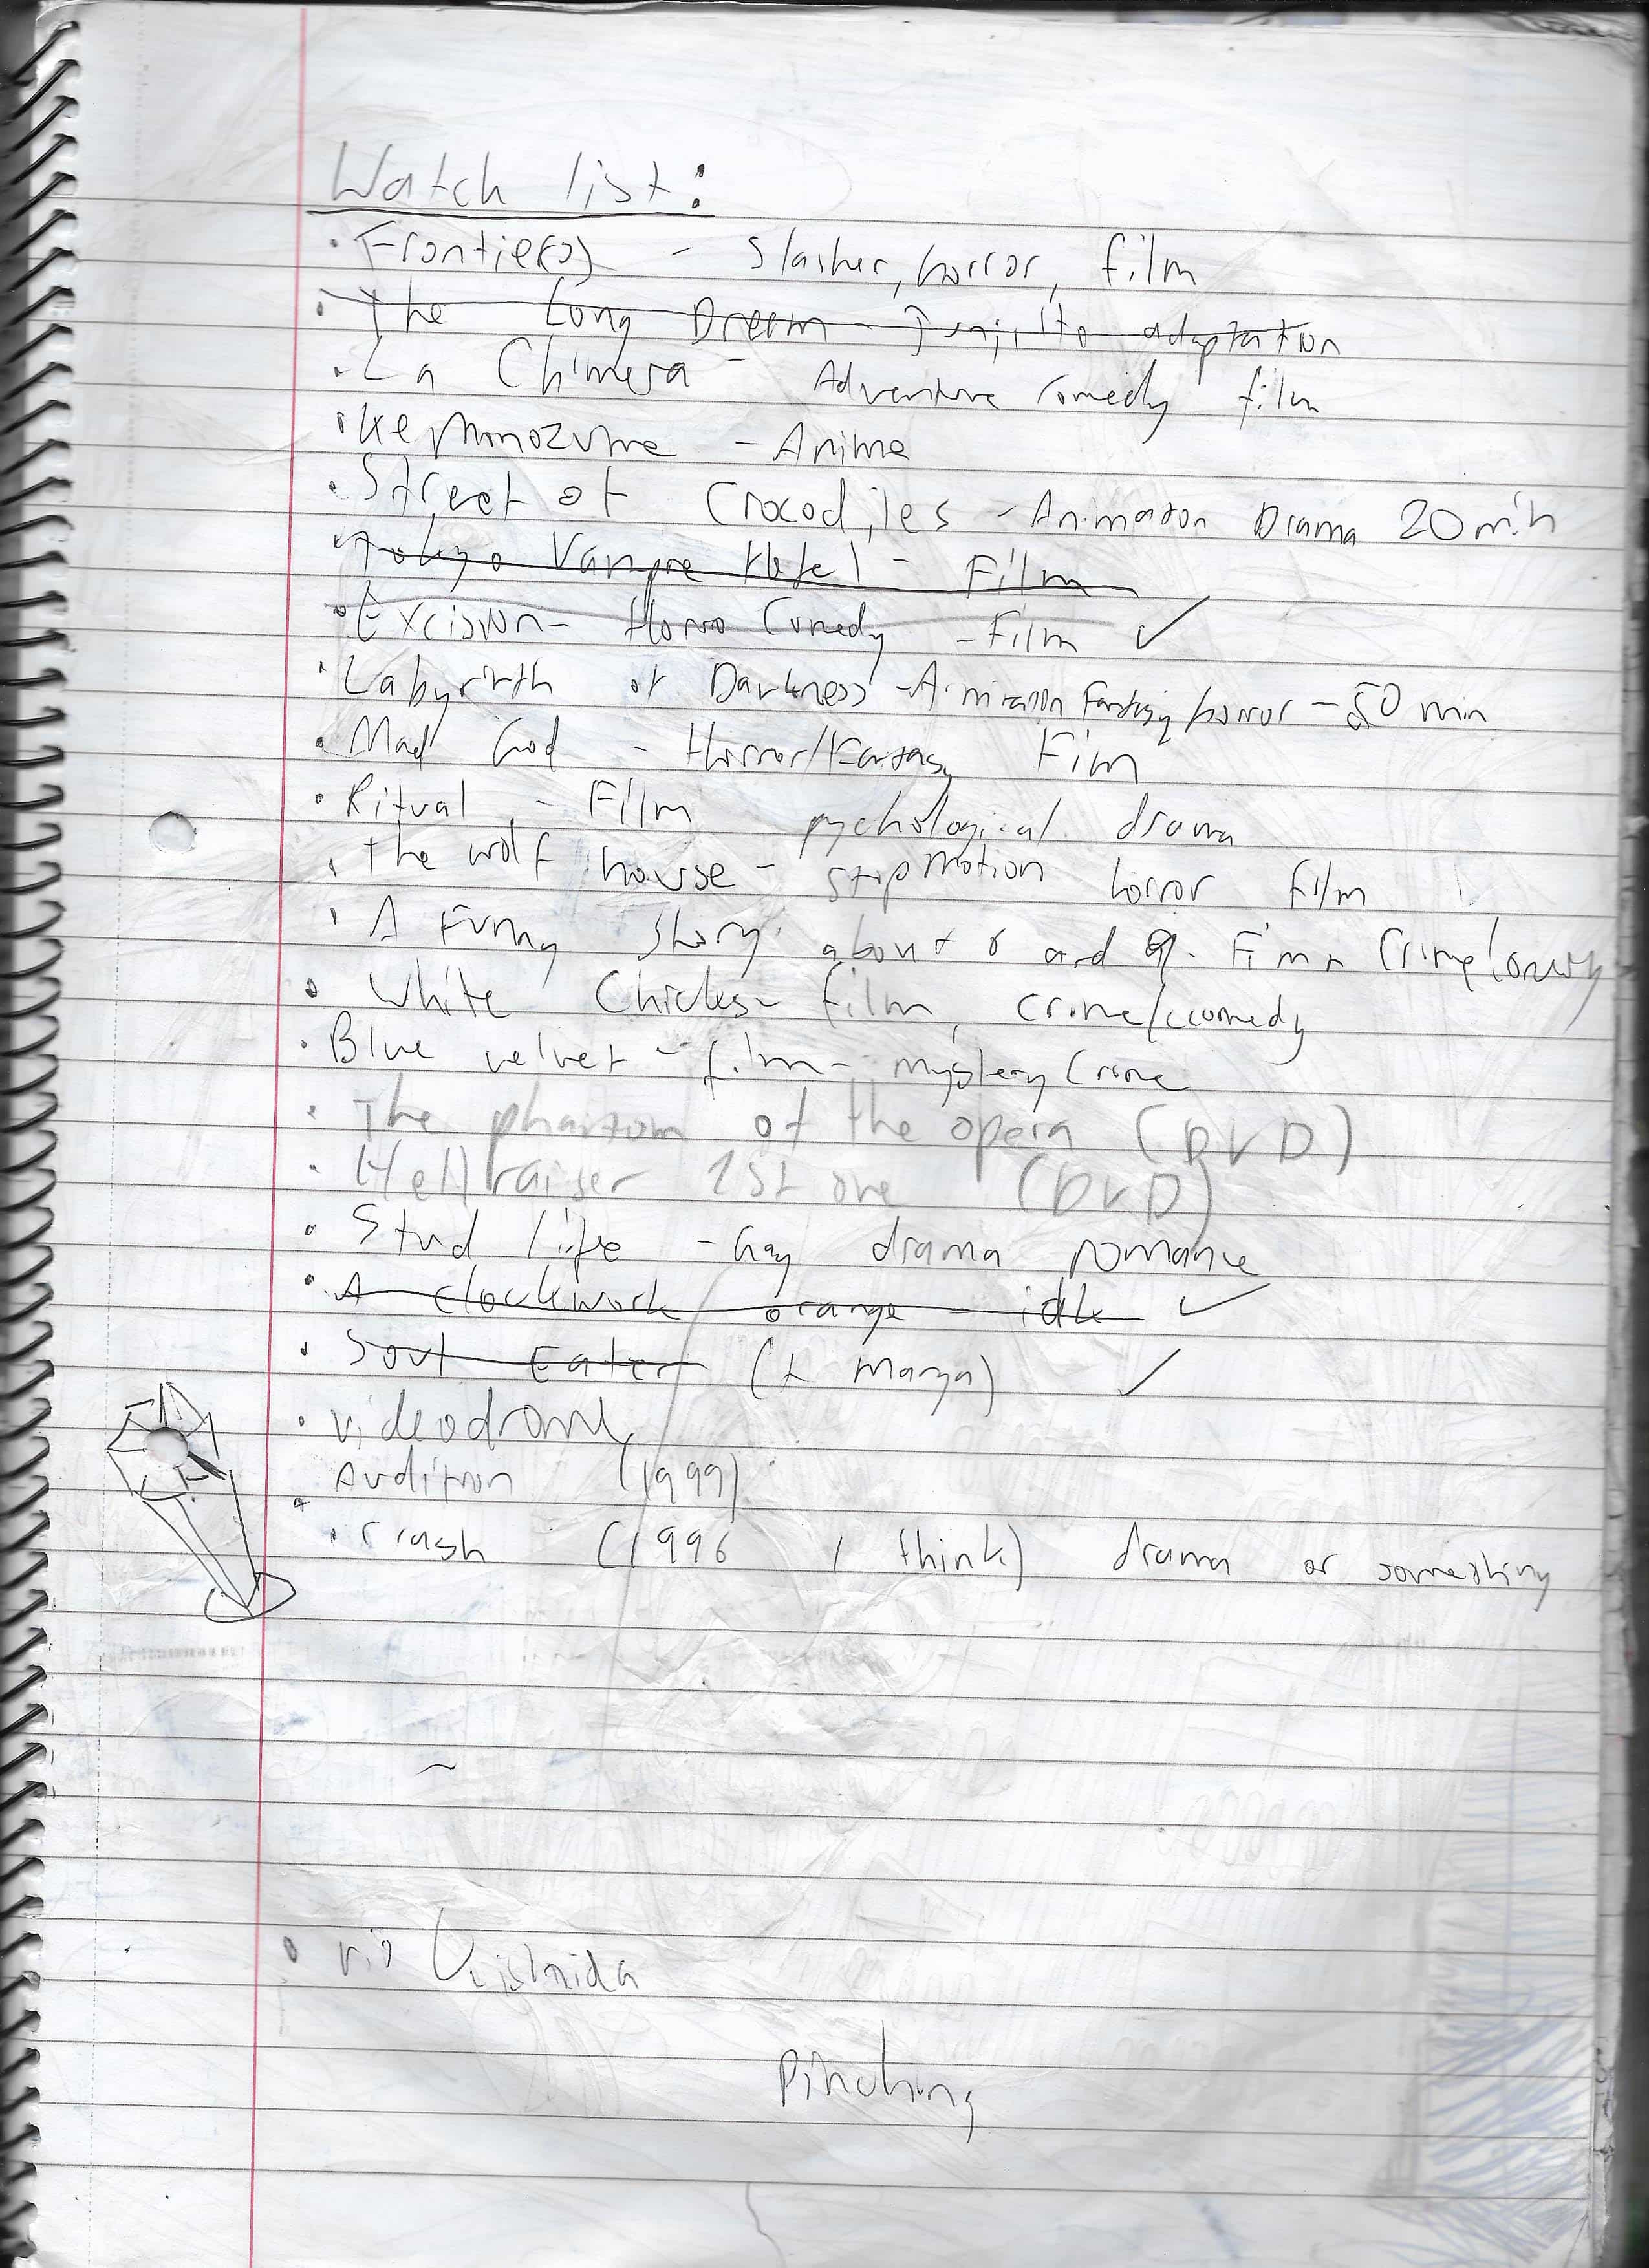 Watch list:
· Frontier(s) - Slasher, horror, film
· The Long Dream - Junji Ito adaptation
· La Chimera - Adventure comedy film
· Kemonozume - Anime
· Street of Crocodiles - Animation Drama 20 min
· Tokyo Vampire Hotel - Film
· Excision - Horro Comedy - Film ✓
· Labyrinth of Darkness - Animation Fantasy horror - 50 min
· Mad God - Horror/Fantasy Film
· Ritual - Film pychological drama
· The wolf house - stop motion horror film
· A Funny story about 6 and 9. Film Crime/comedy
· White Chicks - film, crime/comedy
· Blue velvet - film - mystery Crime
· The phantom of the opera (DVD)
· Hellraiser 1st one (DVD)
· Stud life - Gay drama romance
· A clockwork orange - idk ✓
· Soul Eater (+ Manga) ✓
· Videodrome
· Audition (1999)
· Crash (1996 I think) drama or something
·
Pinching